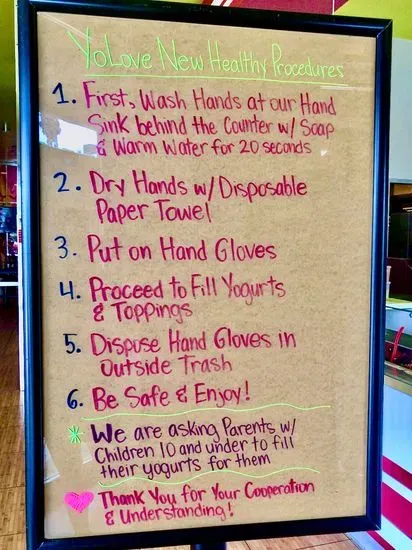 YoLove New Healthy Procedures
1. First, Wash Hands at our Hand
Sink behind the Counter w/ Soap
& Warm Water for 20 seconds
2. Dry Hands w/ Disposable
Paper Towel
3. Put on Hand Gloves
4. Proceed to Fill Yogurts
& Toppings
5. Dispose Hand Gloves in
Outside Trash
6. Be Safe & Enjoy!
* We are asking Parents w/
Children 10 and under to fill
their yogurts for them
Thank You for Your Cooperation
& Understanding!